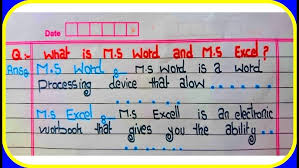 Date
Q:- What is M.S Word and M.S Excel?
Ans M.S Word :- M.S Word is a word
Processing device that alow .....
M.S Excel :- M.S Excell is an electronic
workbook that gives you the ability ...